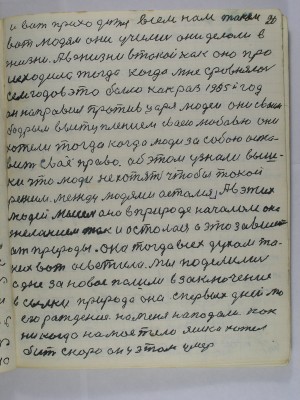 20
и вот приходит всем нам таким
вот людям они учили они делали в
жизни. А в жизни в такой как она про
исходило тогда когда мне сравнялось
семь годов это было как раз 1905й год
он направил против царя люди они своим
бодрым выступлением своею любовью они
хотели тогда когда люди за собою оста
вит своя право. об этом узнали выш-
ки что люди не хотят чтобы такой
режим между людьми остался, А в этих
людей она в природе началом
желанием и осталася а это зависит
от природы. она тогда всех духом та-
ких вот осветила. мы поделились
одне за новое пошли в заключения
в ссылки природа она с первых дней мо
его рождение на меня нападала как
никогда на мое тело я может
быть скоро он у этом умер